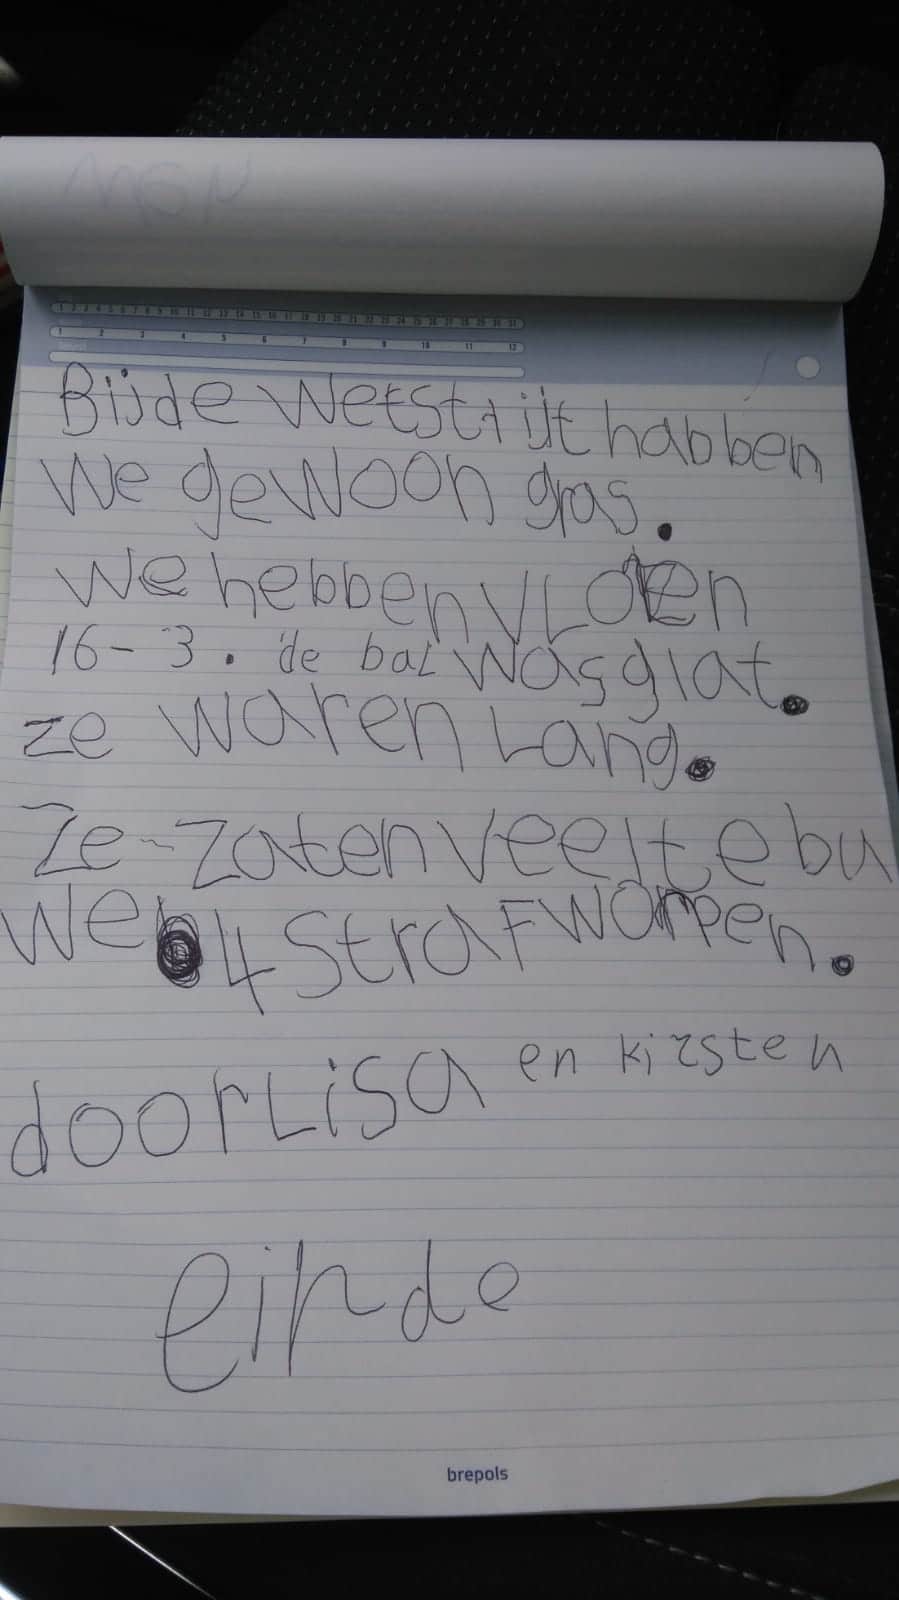 Bijde wetstrijt habben
we gewoon gras.
we hebben vloren
16-3. de bal was glat.
ze waren lang.
Ze-zaten veel te bu
we 4 strafworpen.
door Lisa en kirsten
einde
brepols